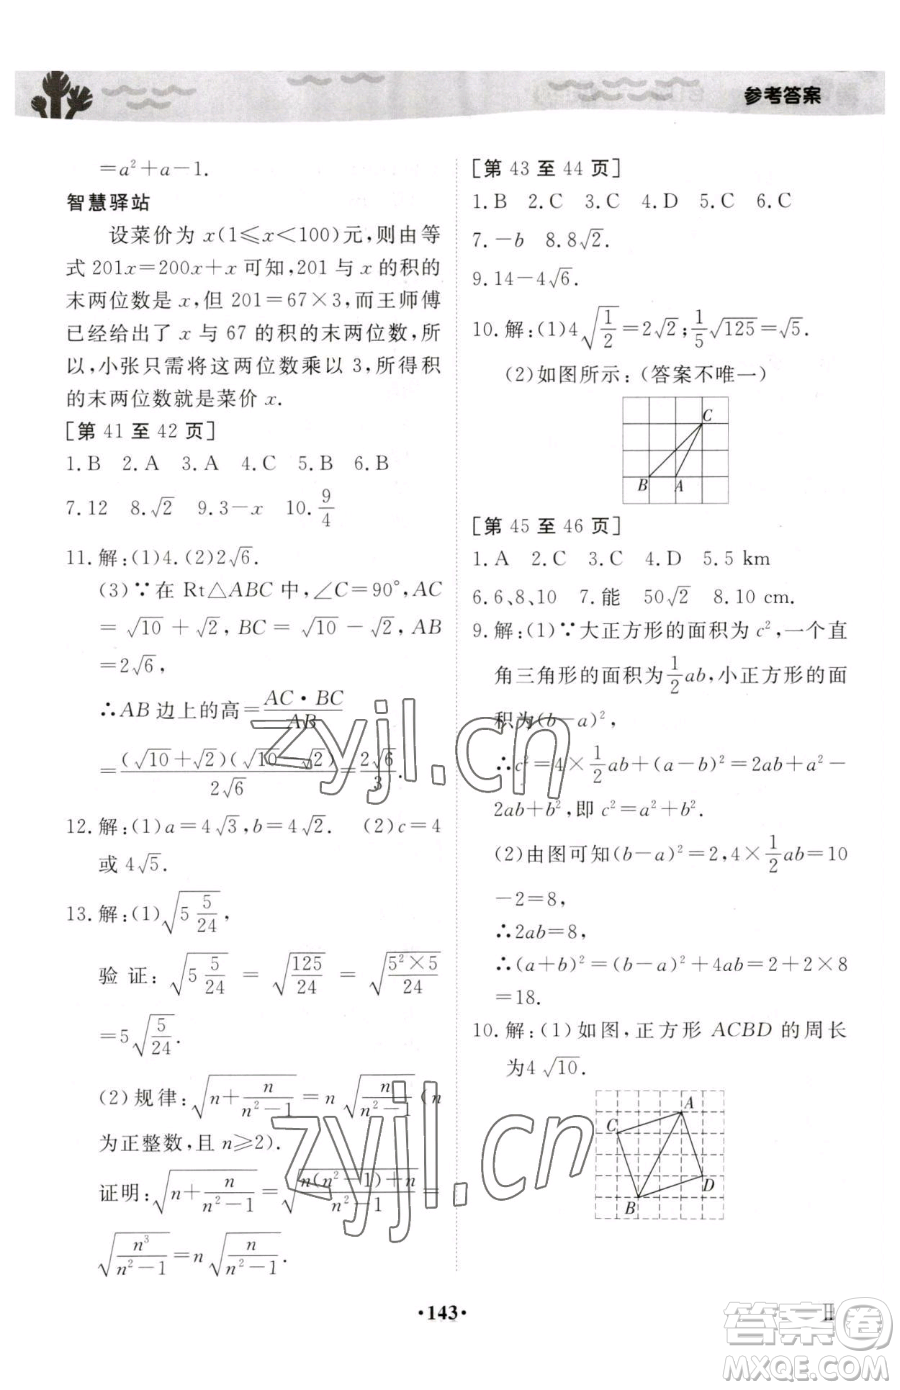 参考答案
=a²+a-1.
智慧驿站
设菜价为 x(1≤x<100)元,则由等
式 201x=200x+x 可知,201 与 x 的积的
末两位数是 x,但 201=67×3,而王师傅
已经给出了 x 与 67 的积的末两位数,所
以,小张只需将这两位数乘以 3,所得积
的末两位数就是菜价 x.
[第 41 至 42 页]
1.B 2.A 3.A 4.C 5.B 6.B
7.12 8.√2 9.3-x 10.9/4
11.解:(1)4.(2)2√6.
(3)∵在 Rt△ABC 中,∠C=90°,AC
=√10+√2,BC=√10-√2,AB
=2√6,
∴AB 边上的高=AC·BC/AB
=(√10+√2)(√10-√2)/2√6=2√6/3.
12.解:(1)a=4√3,b=4√2. (2)c=4
或 4√5.
13.解:(1)√(5 5/24),
验证:√(5 5/24)=√(125/24)=√(5²×5/24)
=5√(5/24).
(2)规律:√(n+n/(n²-1))=n√(n/(n²-1))(n
为正整数,且 n≥2).
证明:√(n+n/(n²-1))=√((n(n²-1)+n)/(n²-1))=
√(n³/(n²-1))=n√(n/(n²-1)).
[第 43 至 44 页]
1.B 2.C 3.C 4.D 5.C 6.C
7.-b 8.8√2.
9.14-4√6.
10.解:(1)4√(1/2)=2√2;1/5√125=√5.
(2)如图所示:(答案不唯一)
C
B A
[第 45 至 46 页]
1.A 2.C 3.C 4.D 5.5 km
6.6、8、10 7.能 50√2 8.10 cm.
9.解:(1)∵大正方形的面积为 c²,一个直
角三角形的面积为1/2ab,小正方形的面
积为(b-a)²,
∴c²=4×1/2ab+(a-b)²=2ab+a²-
2ab+b²,即 c²=a²+b².
(2)由图可知(b-a)²=2,4×1/2ab=10
-2=8,
∴2ab=8,
∴(a+b)²=(b-a)²+4ab=2+2×8
=18.
10.解:(1)如图,正方形 ACBD 的周长
为4√10.
A
C
D
B
·143·
zyjl.cn
zyjl.cn
答案圈
MXQE.COM